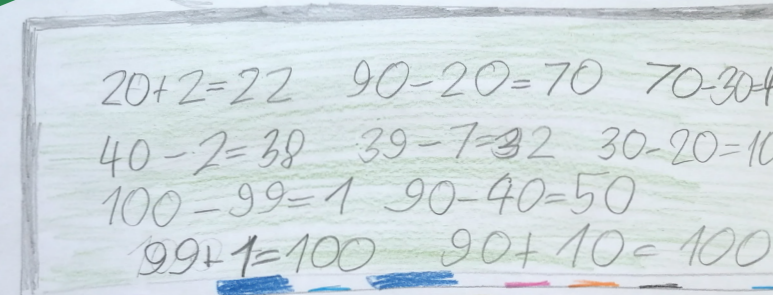 20+2=22 90-20=70 70-30=4
40-2=38 39-7=32 30-20=10
100-99=1 90-40=50
99+1=100 90+10=100